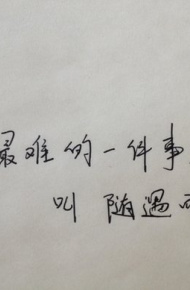 最难的一件事
叫 随遇